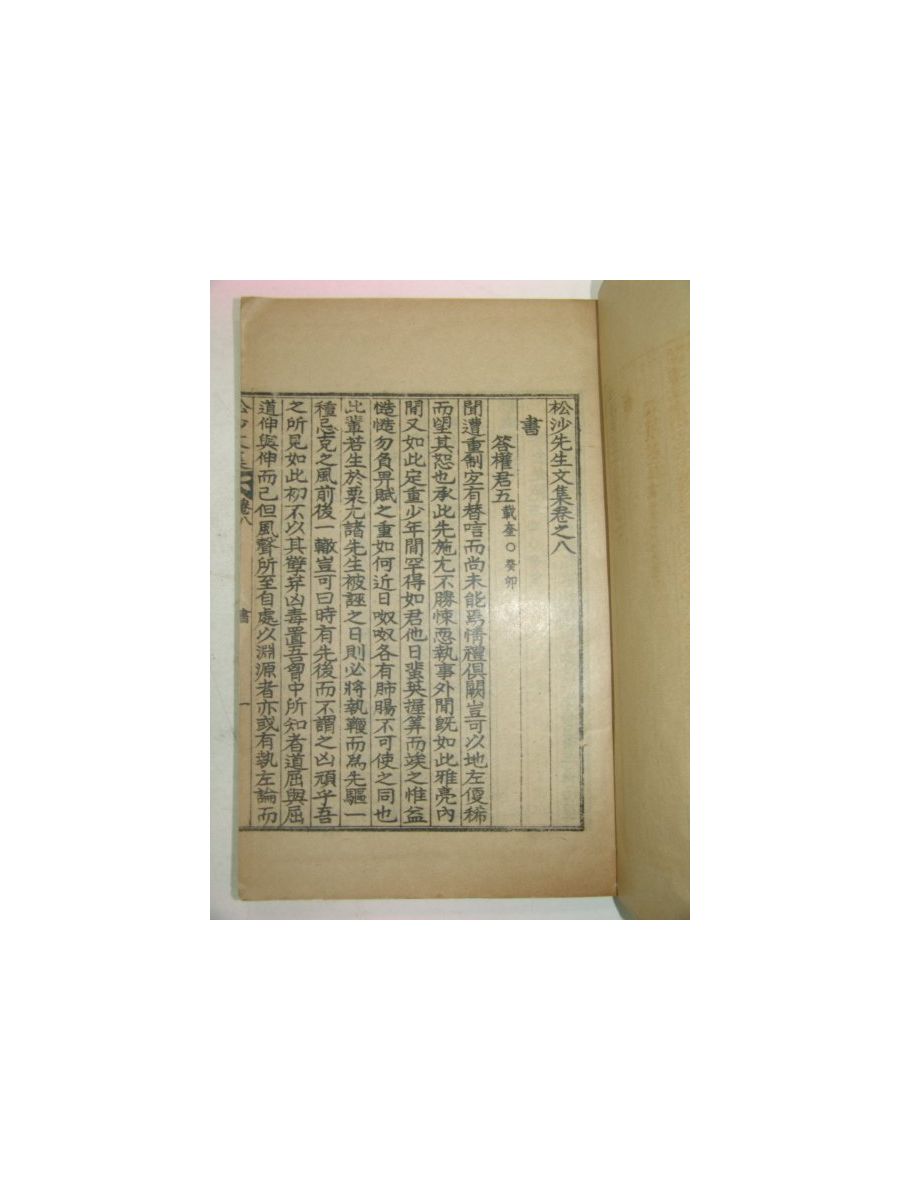 松沙先生文集卷之八
書
答權君五載奎○癸卯
聞遭重制宜有替唁而尚未能焉情禮俱闕豈可以地左便稀
而望其恕也承此先施尤不勝悚恧執事外聞旣如此雅亮內
聞又如此定重少年間罕得如君他日蜚英握筭而竢之惟益
慥慥勿負畀賦之重如何近日呶呶各有肺腸不可使之同也
此輩若生於栗尤諸先生被誣之日則必將執鞭而爲先驅一
種忌克之風前後一轍豈可曰時有先後而不謂之凶頑乎吾
之所見如此初不以其孼芽凶毒置吾胷中所知者道屈與屈
道伸與伸而已但風聲所至自處以淵源者亦或有執左論而
松沙文集 卷八 書 一